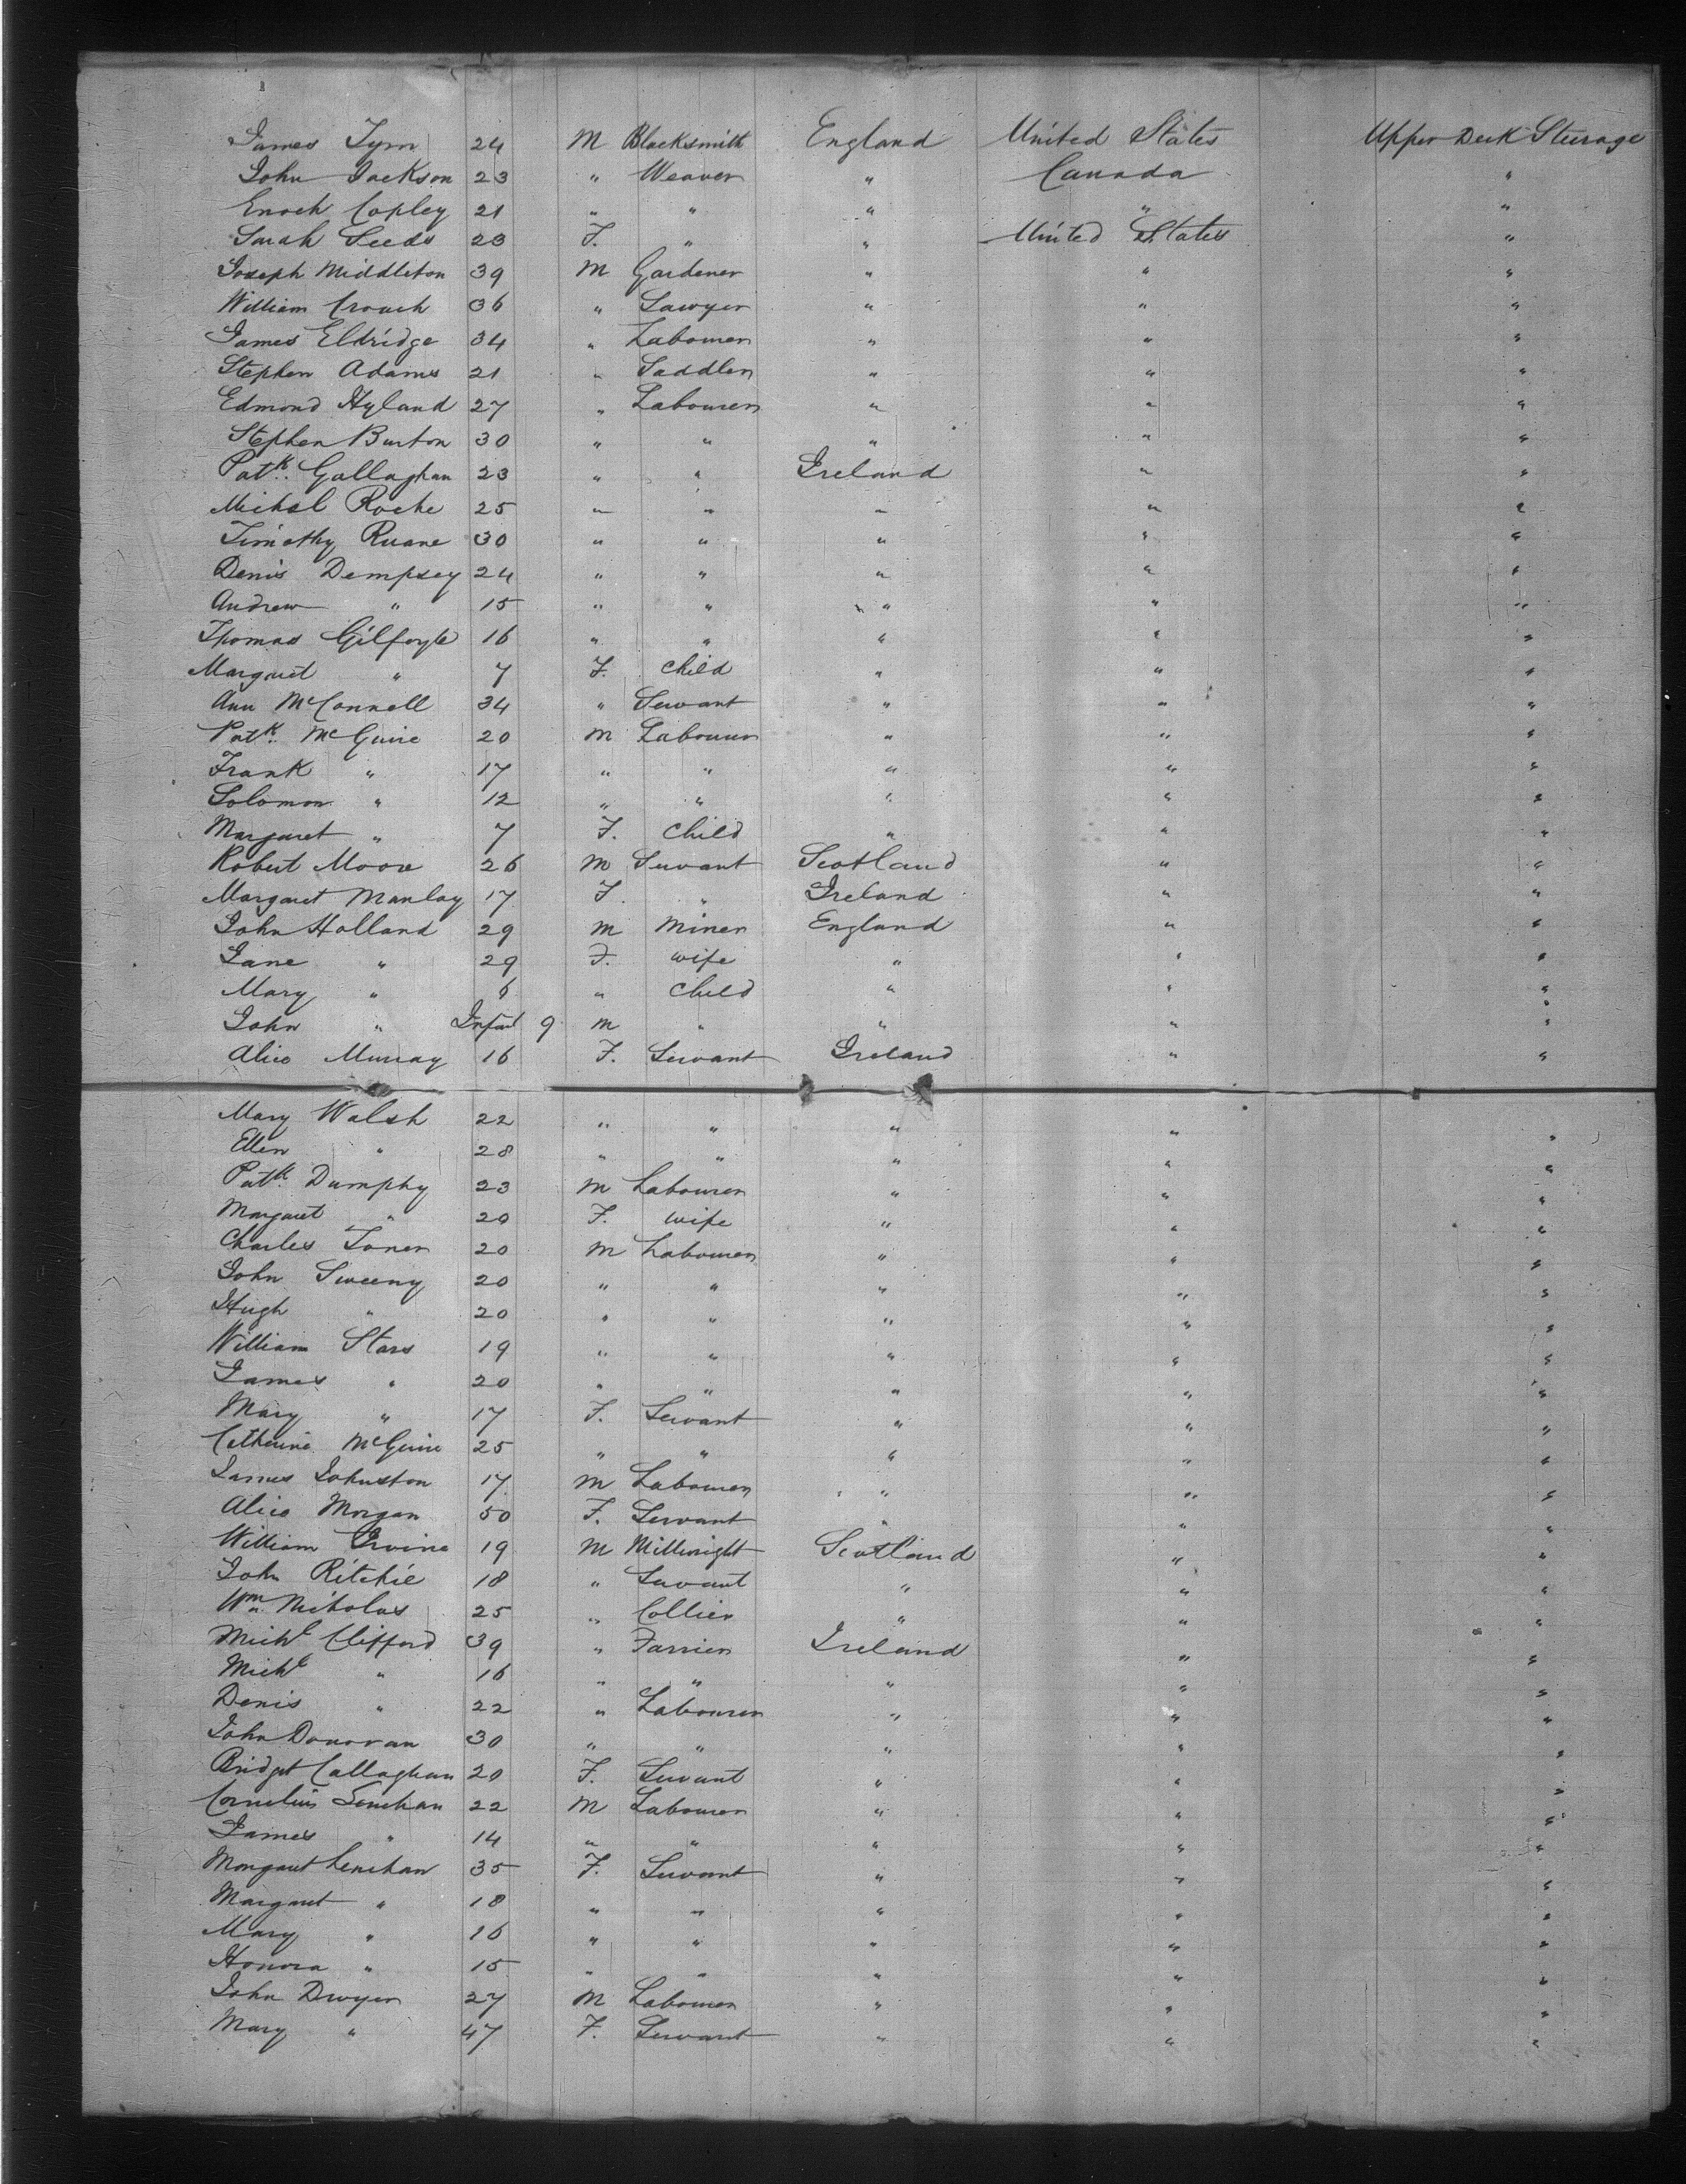 James Tynn 24 M Blacksmith England United States Upper Deck Steerage
John Jackson 23 " Weaver " Canada "
Enoch Copley 21 " " " " "
Sarah Seeds 23 F. " " United States "
Joseph Middleton 39 M Gardener " " "
William Crouch 36 " Sawyer " " "
James Eldridge 34 " Labourer " " "
Stephen Adams 21 " Saddler " " "
Edmond Hyland 27 " Labourer " " "
Stephen Burton 30 " " " " "
Patk. Gallaghan 23 " " Ireland " "
Michal Roche 25 " " " " "
Timothy Ruane 30 " " " " "
Denis Dempsey 24 " " " " "
Andrew " 15 " " " " "
Thomas Gilfoyle 16 " " " " "
Margaret " 7 F. Child " " "
Ann McConnell 34 " Servant " " "
Patk. McGuire 20 M Labourer " " "
Frank " 17 " " " " "
Solomon " 12 " " " " "
Margaret " 7 F. Child " " "
Robert Moore 26 M Servant Scotland " "
Margaret Manlay 17 F. " Ireland " "
John Holland 29 M Miner England " "
Jane " 29 F. Wife " " "
Mary " 6 " Child " " "
John " Infant 9 M " " " "
Alice Murray 16 F. Servant Ireland " "
Mary Walsh 22 " " " " "
Ellen " 28 " " " " "
Patk. Dumphy 23 M Labourer " " "
Margaret " 20 F. Wife " " "
Charles Toner 20 M Labourer " " "
John Sweeny 20 " " " " "
Hugh " 20 " " " " "
William Stars 19 " " " " "
James " 20 " " " " "
Mary " 17 F. Servant " " "
Catherine McGuire 25 " " " " "
James Johnston 17 M Labourer " " "
Alice Morgan 50 F. Servant " " "
William Irvine 19 M Millwright Scotland " "
John Ritchie 18 " Servant " " "
Wm. Nicholas 25 " Collier " " "
Michl Clifford 39 " Farrier Ireland " "
Michl " 16 " " " " "
Denis " 22 " Labourer " " "
John Donovan 30 " " " " "
Bridget Callaghan 20 F. Servant " " "
Cornelius Lenehan 22 M Labourer " " "
James " 14 " " " " "
Margaret Lenehan 35 F. Servant " " "
Margaret " 18 " " " " "
Mary " 16 " " " " "
Honora " 15 " " " " "
John Dwyer 27 M Labourer " " "
Mary " 47 F. Servant " " "